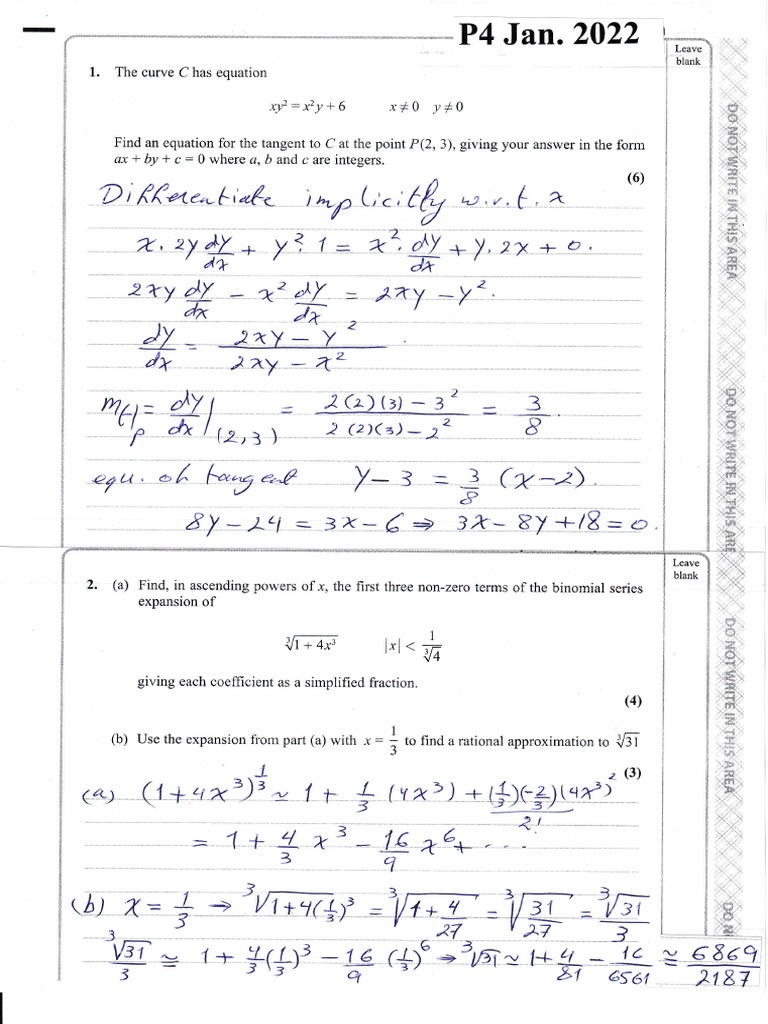 P4 Jan. 2022
Leave
blank
1. The curve C has equation
xy² = x²y + 6 x ≠ 0 y ≠ 0
Find an equation for the tangent to C at the point P(2, 3), giving your answer in the form
ax + by + c = 0 where a, b and c are integers.
(6)
Differentiate implicitly w.r.t. x
x. 2y dy/dx + y². 1 = x². dy/dx + y. 2x + 0.
2xy dy/dx − x² dy/dx = 2xy − y².
dy/dx = (2xy − y²)/(2xy − x²).
m(t)|P = dy/dx|(2,3) = (2(2)(3) − 3²)/(2(2)(3) − 2²) = 3/8.
equ. of tangent y − 3 = 3/8 (x − 2).
8y − 24 = 3x − 6 ⇒ 3x − 8y + 18 = 0.
Leave
blank
2. (a) Find, in ascending powers of x, the first three non-zero terms of the binomial series
expansion of
∛(1 + 4x³) |x| < 1/∛4
giving each coefficient as a simplified fraction.
(4)
(b) Use the expansion from part (a) with x = 1/3 to find a rational approximation to ∛31
(3)
(a) (1 + 4x³)^(1/3) ≃ 1 + 1/3 (4x³) + (1/3)(−2/3)(4x³)²/2!
= 1 + 4/3 x³ − 16/9 x⁶ + ...
(b) x = 1/3 → ∛(1 + 4(1/3)³) = ∛(1 + 4/27) = ∛(31/27) = ∛31/3
∛31/3 ≃ 1 + 4/3 (1/3)³ − 16/9 (1/3)⁶ → ∛31 ≃ 1 + 4/81 − 16/6561 ≃ 6869/2187
DO NOT WRITE IN THIS AREA
DO NOT WRITE IN THIS ARE
DO NOT WRITE IN THIS AREA
DO N